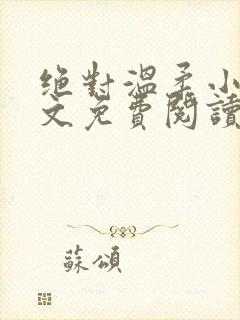 絕對溫柔小
文免費閱讀
蘇頌